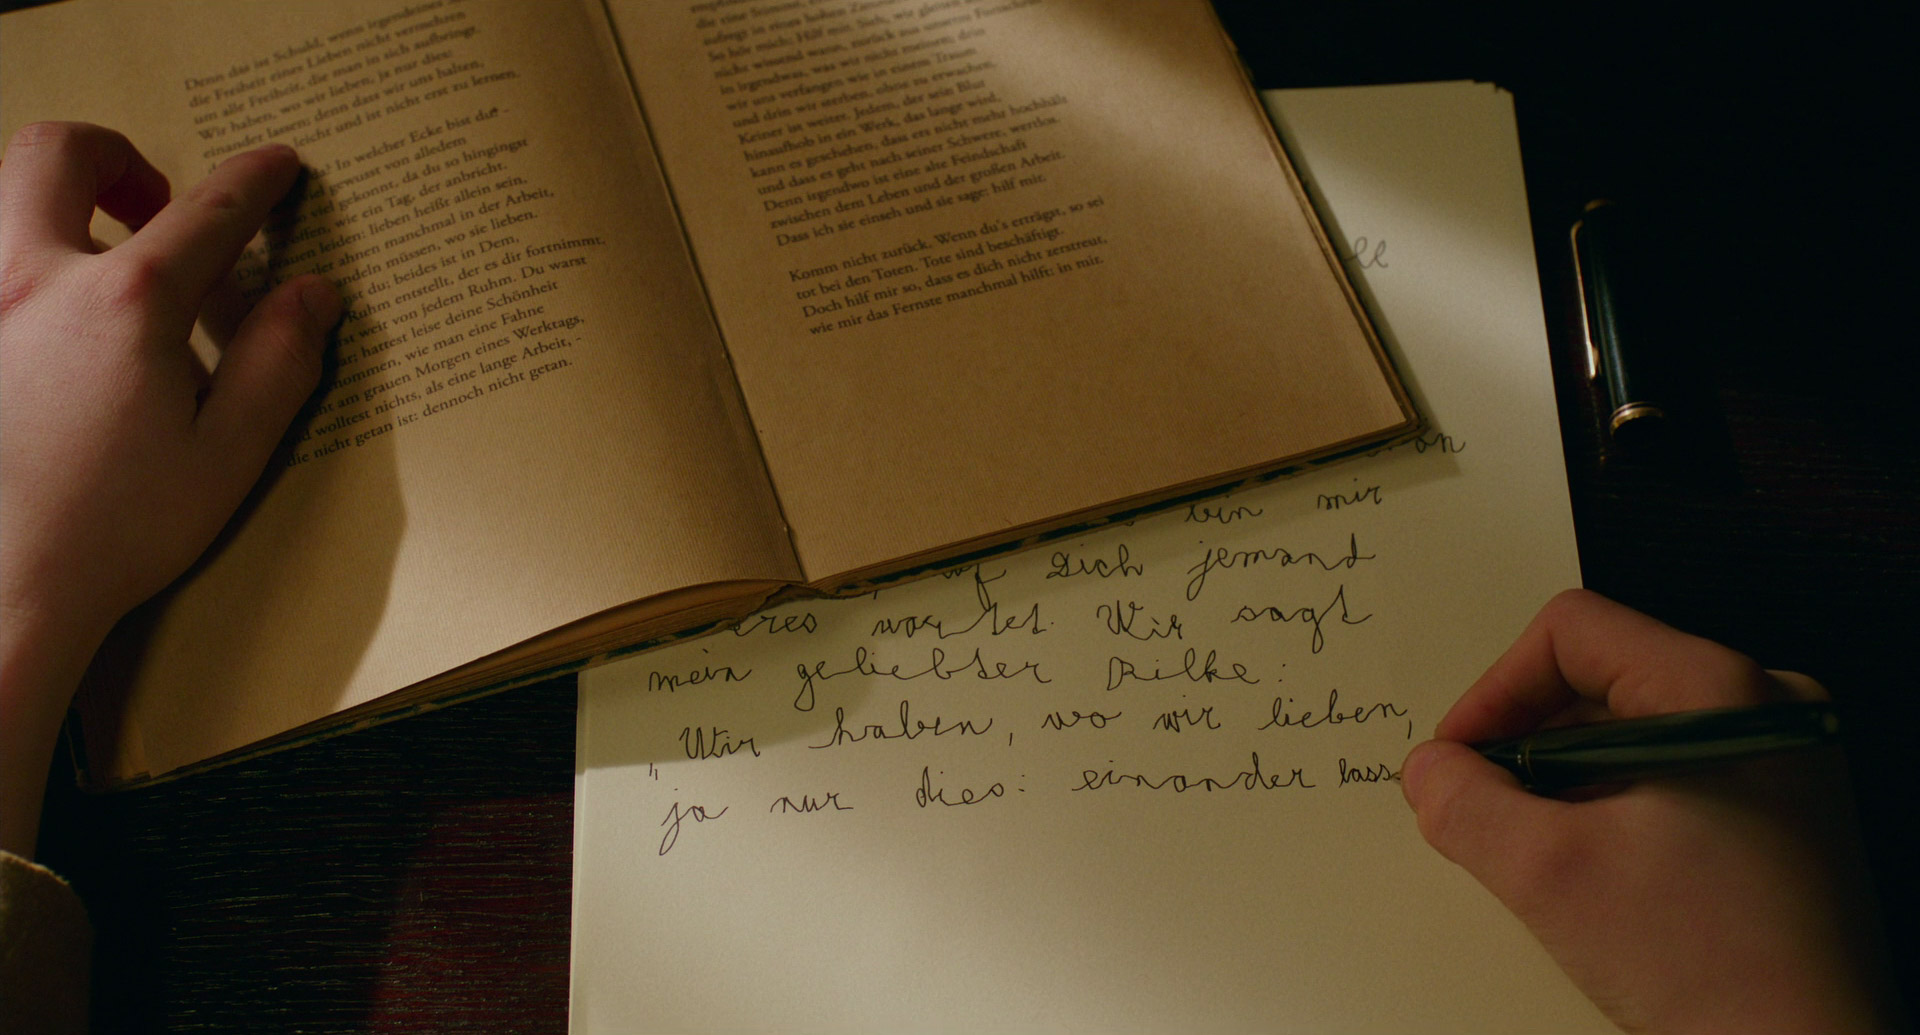 Denn das ist Schuld, wenn irgendeines
die Freiheit eines Lieben nicht vermehren
um alle Freiheit, die man in sich aufbringt.
Wir haben, wo wir lieben, ja nur dies:
einander lassen; denn dass wir uns halten,
leicht und ist nicht erst zu lernen.
da? In welcher Ecke bist du? -
gewusst von alledem
viel gekonnt, da du so hingingst
offen, wie ein Tag, der anbricht.
Die Frauen leiden: lieben heißt allein sein,
ahnen manchmal in der Arbeit,
müssen, wo sie lieben.
du; beides ist in Dem,
Ruhm entstellt, der es dir fortnimmt.
weit von jedem Ruhm. Du warst
hattest leise deine Schönheit
wie man eine Fahne
am grauen Morgen eines Werktags,
wolltest nichts, als eine lange Arbeit, -
die nicht getan ist: dennoch nicht getan.
die eine Stimme,
aufregt in eines hohen
So hör mich: Hilf mir. Sieh, wir gleiten
nicht wissend wann, zurück aus unserm Fortschritt
in irgendwas, was wir nicht meinen; drin
wir uns verfangen wie in einem Traum
und drin wir sterben, ohne zu erwachen.
Keiner ist weiter. Jedem, der sein Blut
hinaufhob in ein Werk, das lange wird,
kann es geschehen, dass ers nicht mehr hochhält
und dass es geht nach seiner Schwere, wertlos.
Denn irgendwo ist eine alte Feindschaft
zwischen dem Leben und der großen Arbeit.
Dass ich sie einseh und sie sage: hilf mir.
Komm nicht zurück. Wenn du's erträgst, so sei
tot bei den Toten. Tote sind beschäftigt.
Doch hilf mir so, dass es dich nicht zerstreut,
wie mir das Fernste manchmal hilft: in mir.
bin mir
Dich jemand
wartet. Wie sagt
mein geliebter Rilke:
„Wir haben, wo wir lieben,
ja nur dies: einander lass